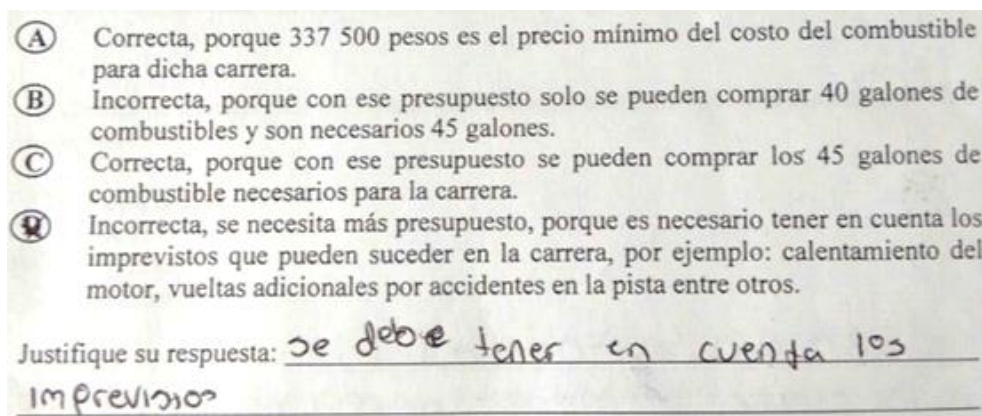 A Correcta, porque 337 500 pesos es el precio mínimo del costo del combustible
para dicha carrera.
B Incorrecta, porque con ese presupuesto solo se pueden comprar 40 galones de
combustibles y son necesarios 45 galones.
C Correcta, porque con ese presupuesto se pueden comprar los 45 galones de
combustible necesarios para la carrera.
D Incorrecta, se necesita más presupuesto, porque es necesario tener en cuenta los
imprevistos que pueden suceder en la carrera, por ejemplo: calentamiento del
motor, vueltas adicionales por accidentes en la pista entre otros.
Justifique su respuesta: se debe tener en cuenta los
imprevistos